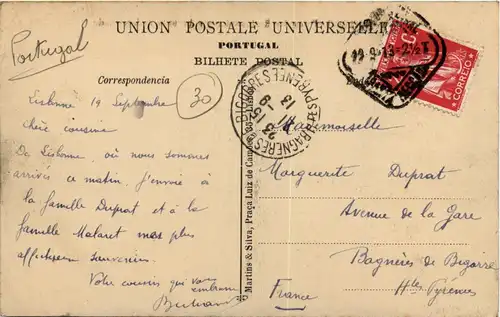 UNION POSTALE UNIVERSELLE
PORTUGAL
BILHETE POSTAL
Portugal
Correspondencia
30
CORREIO
BAGNERES DE BIGORRE
HTES PYRENEES
23
9
13
Lisbonne 19 Septembre
chère cousine
De Lisbonne, où nous sommes
arrivés ce matin, j'envoie à
la famille Duprat et à la
famille Malaret mes plus
affectueux souvenirs.
Votre cousin qui vous
embrasse
Bertrand
Martins & Silva, Praça Luiz de Camões, 35 - Lisboa
Mademoiselle
Marguerite Duprat
Avenue de la Gare
Bagnères de Bigorre
Htes Pyrénées
France